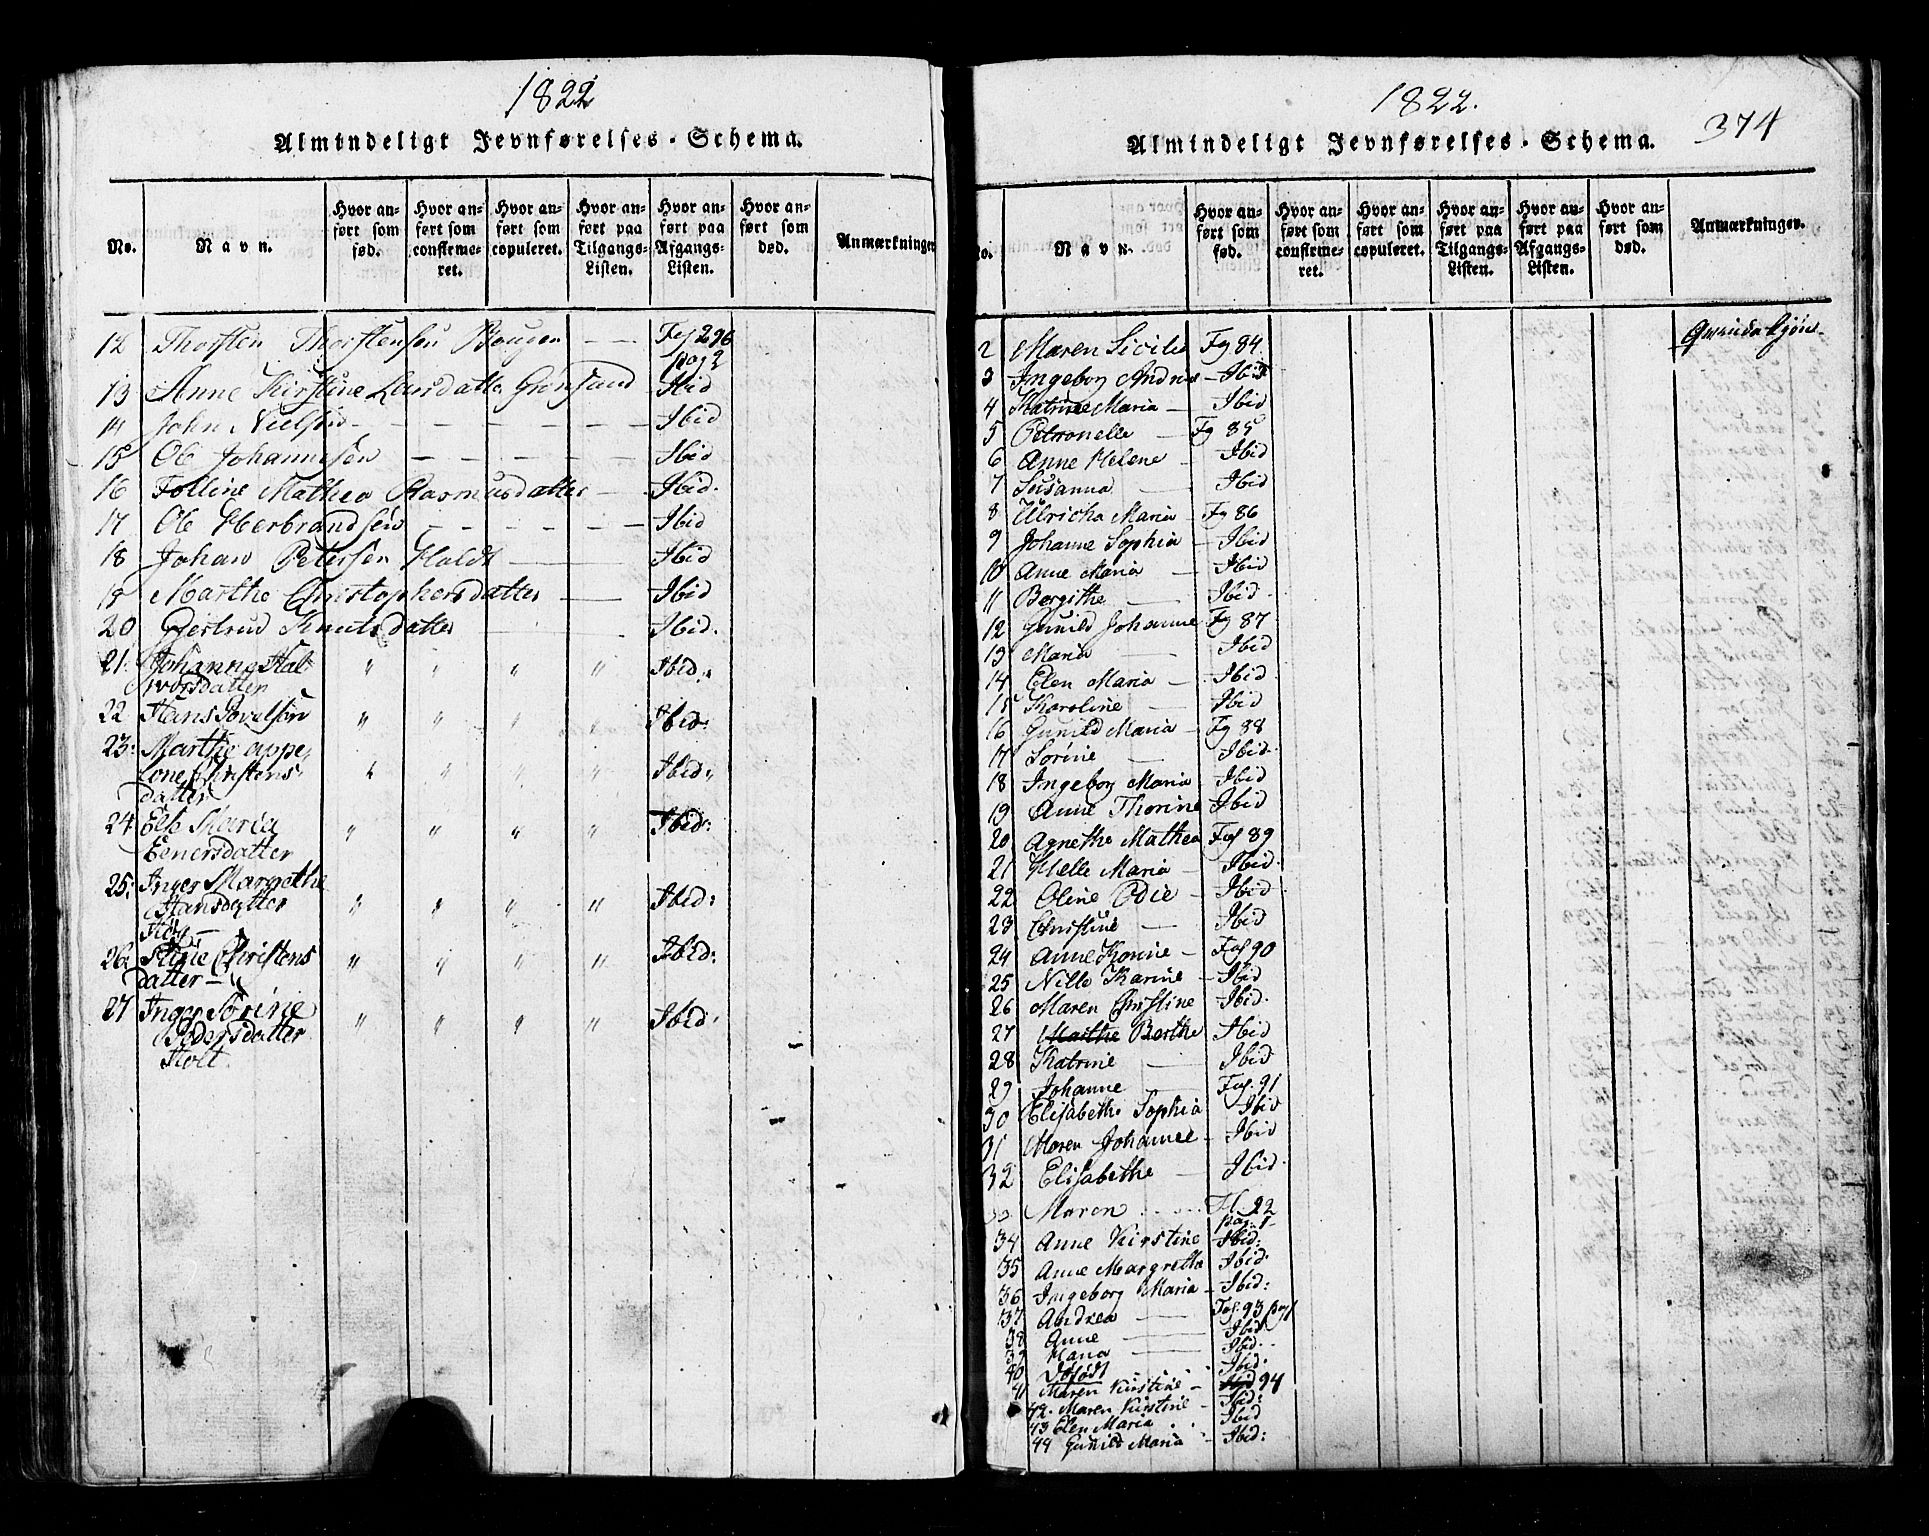 1822
Almindeligt Jevnførelses-Schema.
No.
Navn.
Hvor an-
ført som
fød.
Hvor an-
ført som
confirme-
ret.
Hvor an-
ført som
copuleret.
Hvor an-
ført paa
Tilgangs-
Listen.
Hvor an-
ført paa
Afgangs-
Listen.
Hvor an-
ført som
død.
Anmærkninger
12 Thorsten Thorstensen Bougen — — Fol 296
pag 2
13 Anne Kirstine Larsdatter Grønsund Ibid
14 John Nielsen - — — — — — — Ibid
15 Ole Johannesen — — — — — Ibid
16 Tolline Mathea Rasmusdatter — Ibid.
17 Ole Herbrandsen - — — — — — Ibid
18 Johan Petersen Holdt — — Ibid
19 Marthe Christophersdatter — — Ibid
20 Giertrud Knutsdatter — — Ibid.
21. Johanne Hal- " " " " Ibid:
vorsdatter
22 Hans Povelsøn " " " " Ibid:
23: Marthe appe,
lone Christens " " " " Ibid:
datter
24 Else Maria " " " " Ibid:
Eenersdatter
25: Inger Margrethe
Hansdatter " " " " Ibid:
26. Stine Christens " " " " Ibid:
datter —
27 Inger Sørine
Pedersdatter " " " " Ibid:
Holt.
1822.
Almindeligt Jevnførelses-Schema.
374
No.
Navn.
Hvor an-
ført som
fød.
Hvor an-
ført som
confirme-
ret.
Hvor an-
ført som
copuleret.
Hvor an-
ført paa
Tilgangs-
Listen.
Hvor an-
ført paa
Afgangs-
Listen.
Hvor an-
ført som
død.
Anmærkninger.
Qvindekjøn-
2 Maren Sicilie Fg 84.
3 Ingeborg Andrea — Ibid
4 Katrine Maria — Ibid
5 Petronelle — Fg 85
6 Anne Helene - Ibid
7 Susanna — Ibid
8 Ulricha Maria - Fg 86
9 Johanne Sophia - Ibid
10 Anne Maria — Ibid
11 Bergithe — Ibid.
12 Gunild Johanne Fg 87.
13 Maria — Ibid
14 Elen Maria — Ibid.
15 Karoline — Ibid
16 Gunild Maria — Fg 88
17 Sørine — Ibid.
18 Ingeborg Maria - Ibid
19 Anne Thorine Ibid
20 Agnethe Mathea Fol 89
21 Helle Maria - Ibid.
22 Oline Odie - Ibid.
23 Christine — Ibid
24 Anne Karine - Fol 90
25 Nille Karine - Ibid
26 Maren Christine Ibid.
27 Marthe Berthe Ibid
28 Katrine — Ibid
29 Johanne — Fol. 91
30 Elisabeth Sophia Ibid
31 Maren Johanne - Ibid
32 Elisabethe — Ibid.
Maren — Fol. 92
pag. 1-
34 Anne Kirstine Ibid:
35 Anne Margrethe Ibid
36 Ingeborg Maria - Ibid:
37 Andrea — Fol. 93 pag 1
38 Anne — Ibid
39 Maria — Ibid.
40 Døfødt Ibid.
41 Maren Kirstine - Ibid 94
42. Maren Kirstine - Ibid:
43 Elen Maria Ibid
44 Gunild Maria - Ibid: